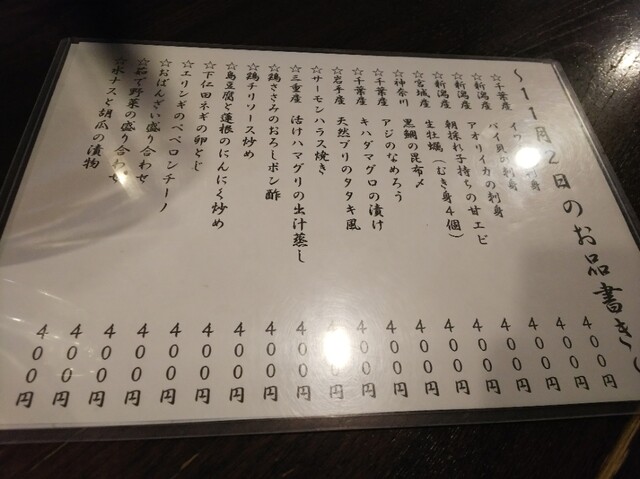 ～11月2日のお品書き～
☆千葉産 イワ 刺身 400円
☆新潟産 バイ貝の刺身 400円
☆新潟産 アオリイカの刺身 400円
☆新潟産 朝採れ子持ちの甘エビ 400円
☆宮城産 生牡蠣（むき身4個） 400円
☆神奈川 黒鯛の昆布〆 400円
☆千葉産 アジのなめろう 400円
☆千葉産 キハダマグロの漬け 400円
☆岩手産 天然ブリのタタキ風 400円
☆サーモンハラス焼き 400円
☆三重産 活けハマグリの出汁蒸し 400円
☆鶏ささみのおろしポン酢 400円
☆鶏チリソース炒め 400円
☆島豆腐と蓮根のにんにく炒め 400円
☆下仁田ネギの卵とじ 400円
☆エリンギのペペロンチーノ 400円
☆おばんざい盛り合わせ 400円
☆茹で野菜の盛り合わせ 400円
☆水ナスと胡瓜の漬物 400円